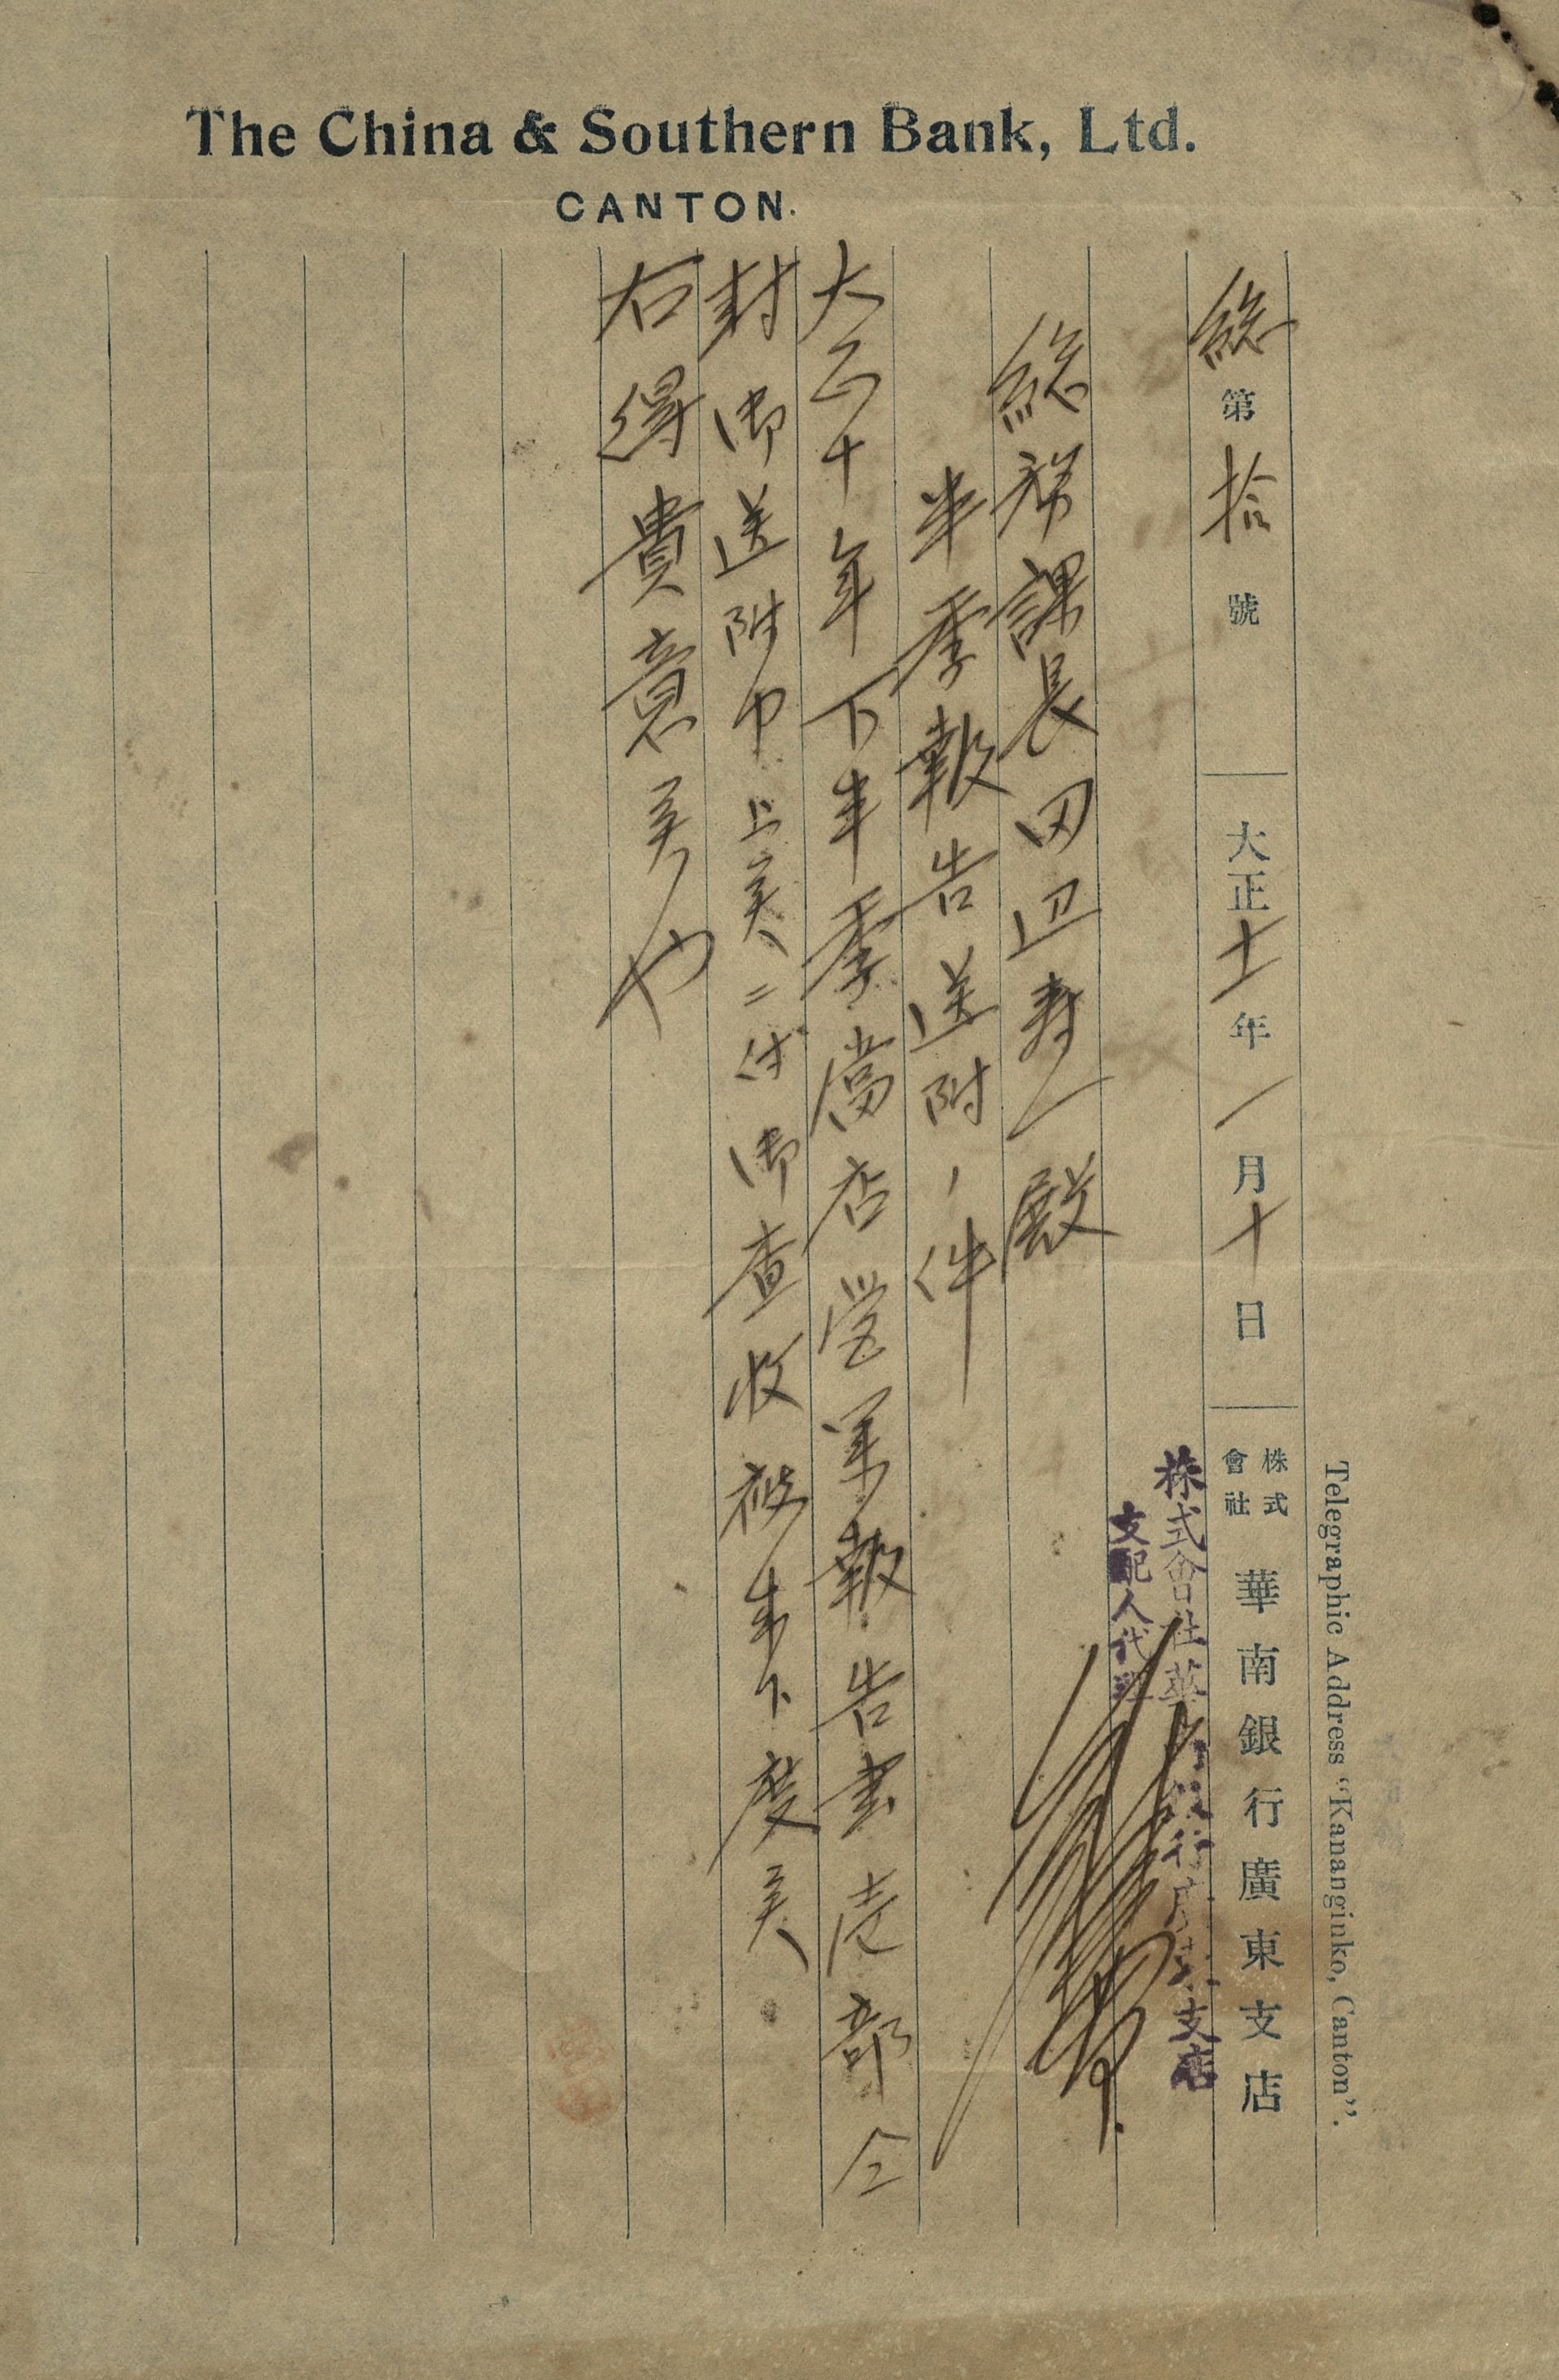 The China & Southern Bank, Ltd.
CANTON.
Telegraphic Address "Kananginko, Canton".
総第拾號 大正十一年一月十日 株式會社 華南銀行廣東支店
株式會社華南銀行廣東支店
支配人代理
総務課長田辺寿一殿
半季報告送附ノ件
大正十年下半季當店営業報告書壱部仝
封御送附申上候ニ付御査收被成下度候
右得貴意候也